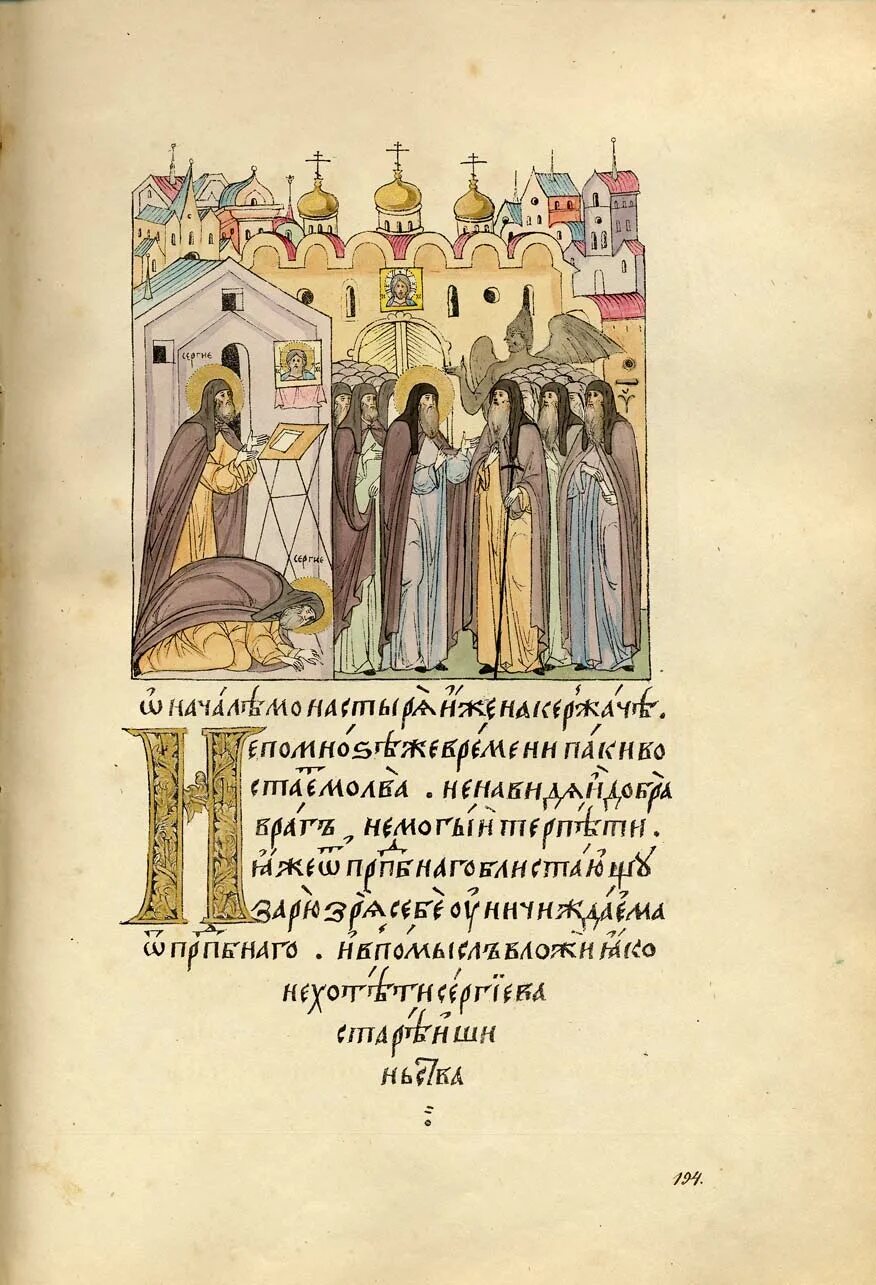 СЕРГИЕ
СЕРГИЕ
Ѡ НАЧА́ЛѢ МОНАСТЫРѦ̀ И҆́ЖЕ НА КЕРЖА́ЧѢ.
НЕ ПО МНО́ЗѢ ЖЕ ВРЕ́МЕНИ ПА́КИ ВО
СТАЕ́Тъ МОЛВА̀ . НЕНАВИ́ДѦЙ ДОБРА̀
ВРА́ГЪ, НЕ МОГІ́Й ТЕРПѢ́ТИ .
Ꙗ҆́ЖЕ Ѿ ПРПⷣБНАГО БЛИСТА́ЮЩꙊ
ЗАРЮ̀ ЗРѦ̀ СЕБЀ ОУ҆НИЧИЖДА́ЕМА
Ѿ ПРПⷣБНАГО . И҆ В ПО́МЫСЛЪ ВЛОЖЍ Ꙗ҆́КО
НЕ ХОТѢ́ТИ СЕ́РГЇЕВА
СТАРѢ́ЙШИ
НЬСТВА
194.